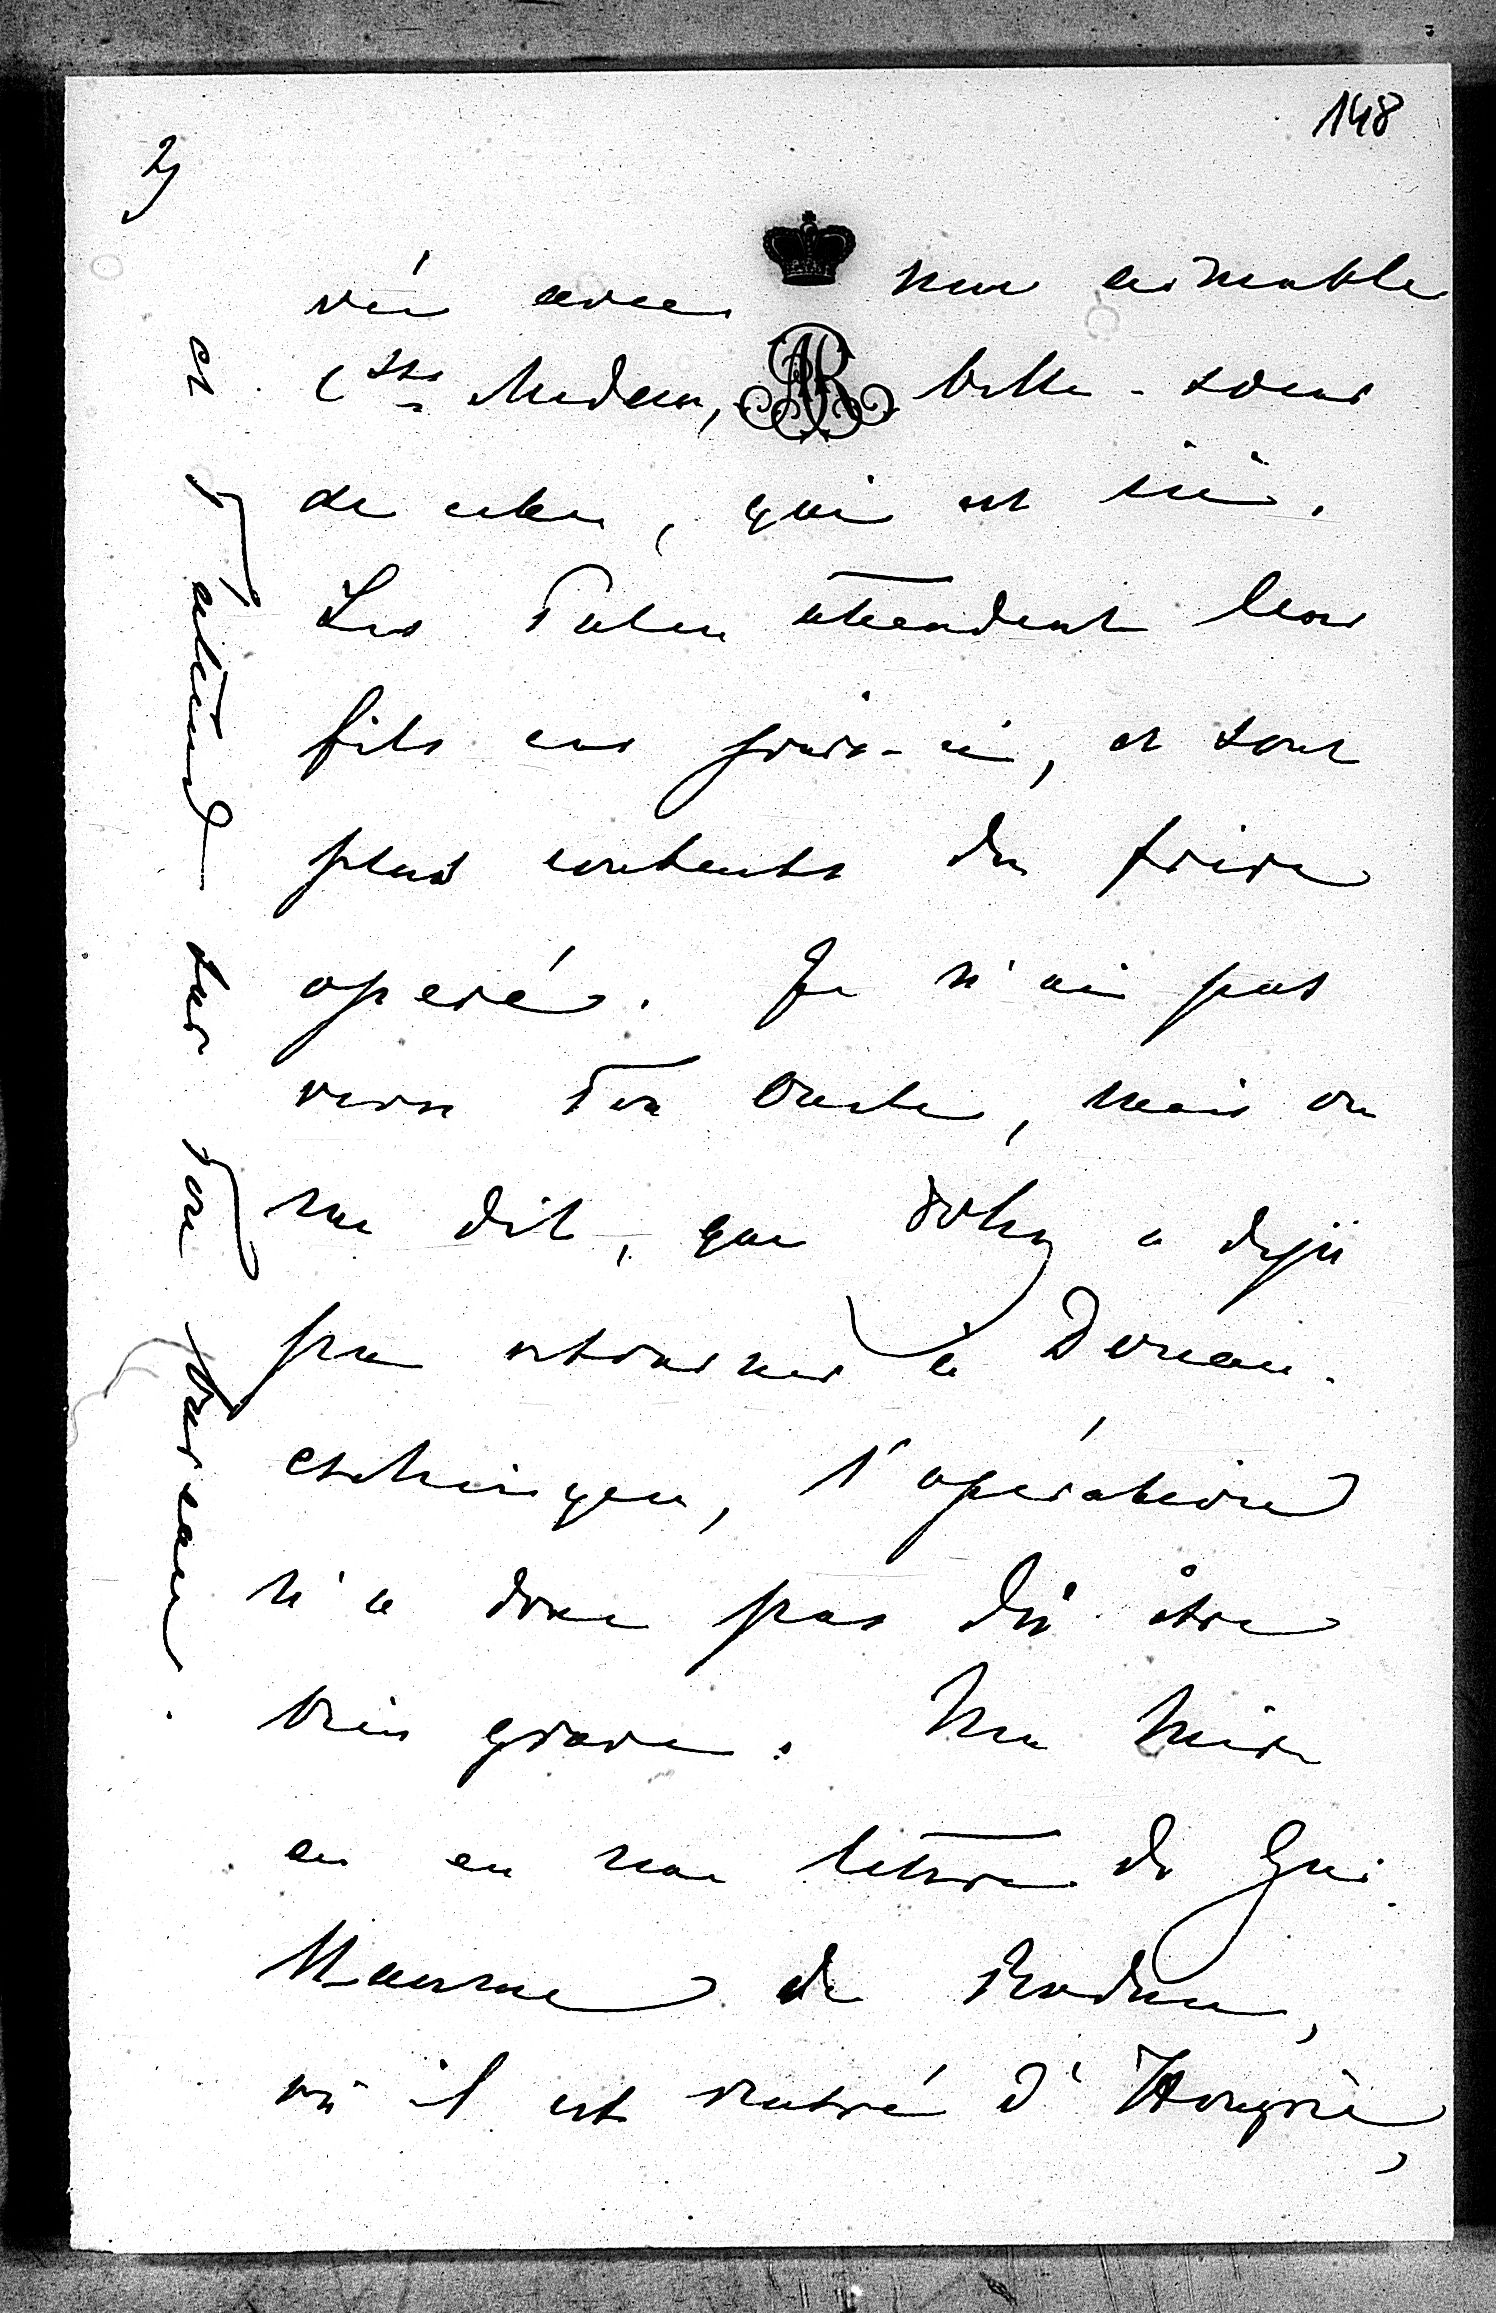 148
2)
rée avec une aimable
C<sup>sse</sup> Medem, belle-soeur
de celui, qui est ici.
Les Palen attendent leur
fils ces jours-ci, et sont
plus contents du frère
operé. Je n'ai pas
revu Ton Oncle, mais on
me dit, que a dejà
pu retourner à Donau-
eschingen, l'opération
n'a donc pas dû être
bien grave. Ma Mère
a eu une lettre de Gui
llaume de Bade,
où il est rentré d'Hongrie,
et attend sur Ton